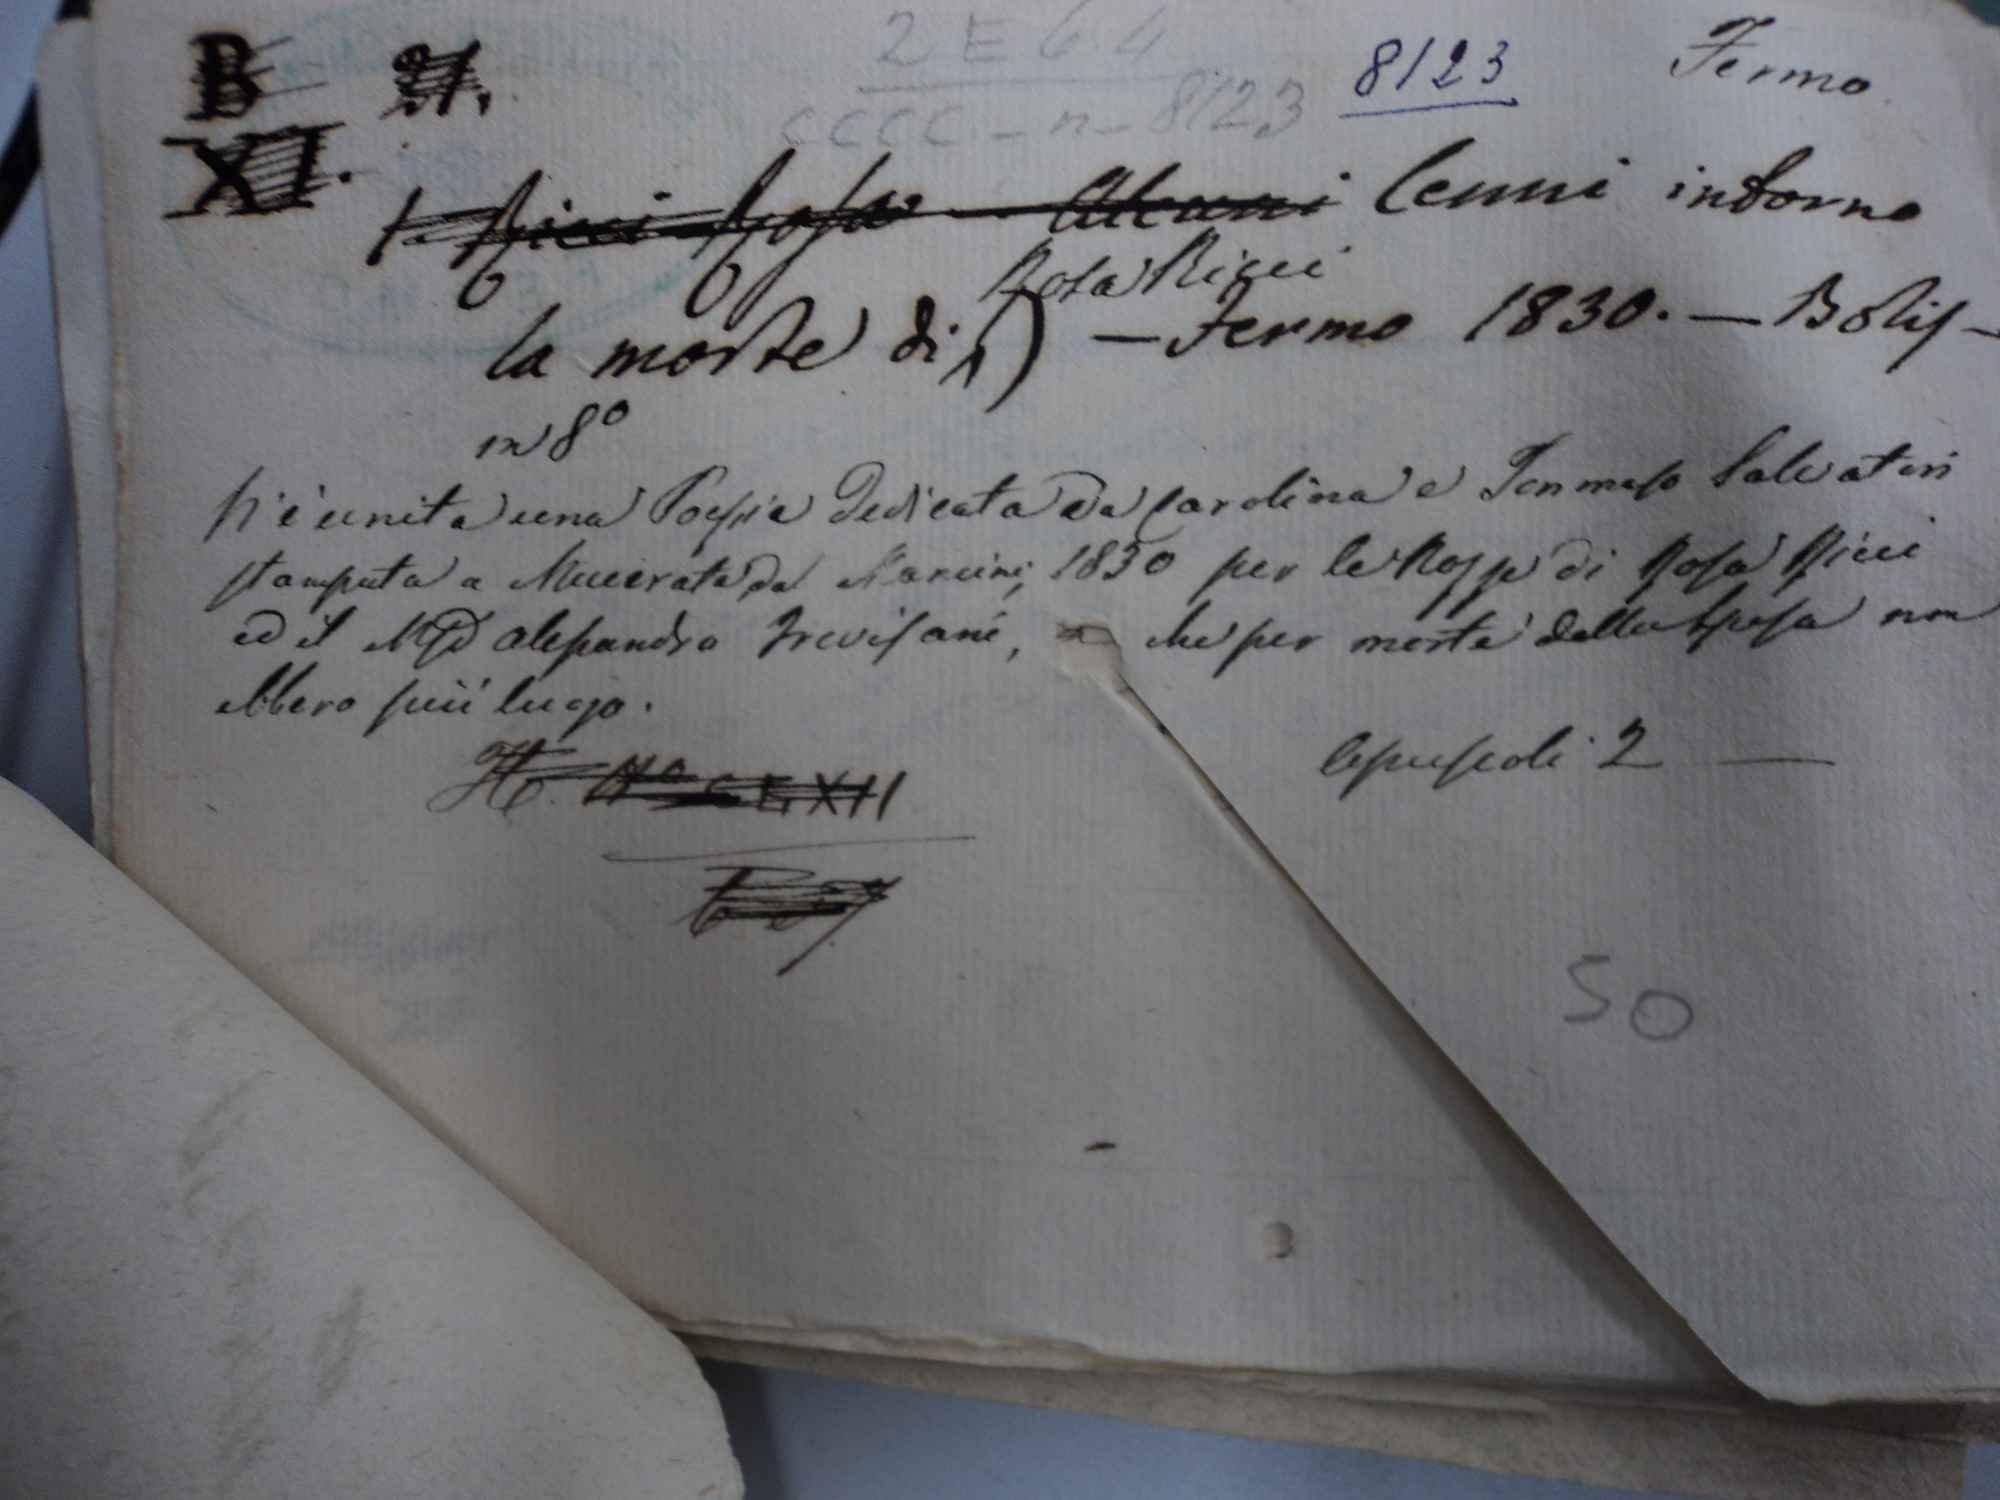 B 21. 2 E 6. 4 8123 Fermo
XI. CCCC - n - 8123
Ricci Rosa - Alcuni Cenni intorno
Rosa Ricci
la morte di ) - Fermo 1830. - Bolis -
in 8º
Vi è unita una Poesia dedicata da Carolina e Tommaso Salvatori
stampata a Macerata dal Mancini, 1830 per le Nozze di Rosa Ricci
ed il Alessandro Trevisani, che per morte della Sposa non
ebbero più luogo.
opuscoli 2 —
50